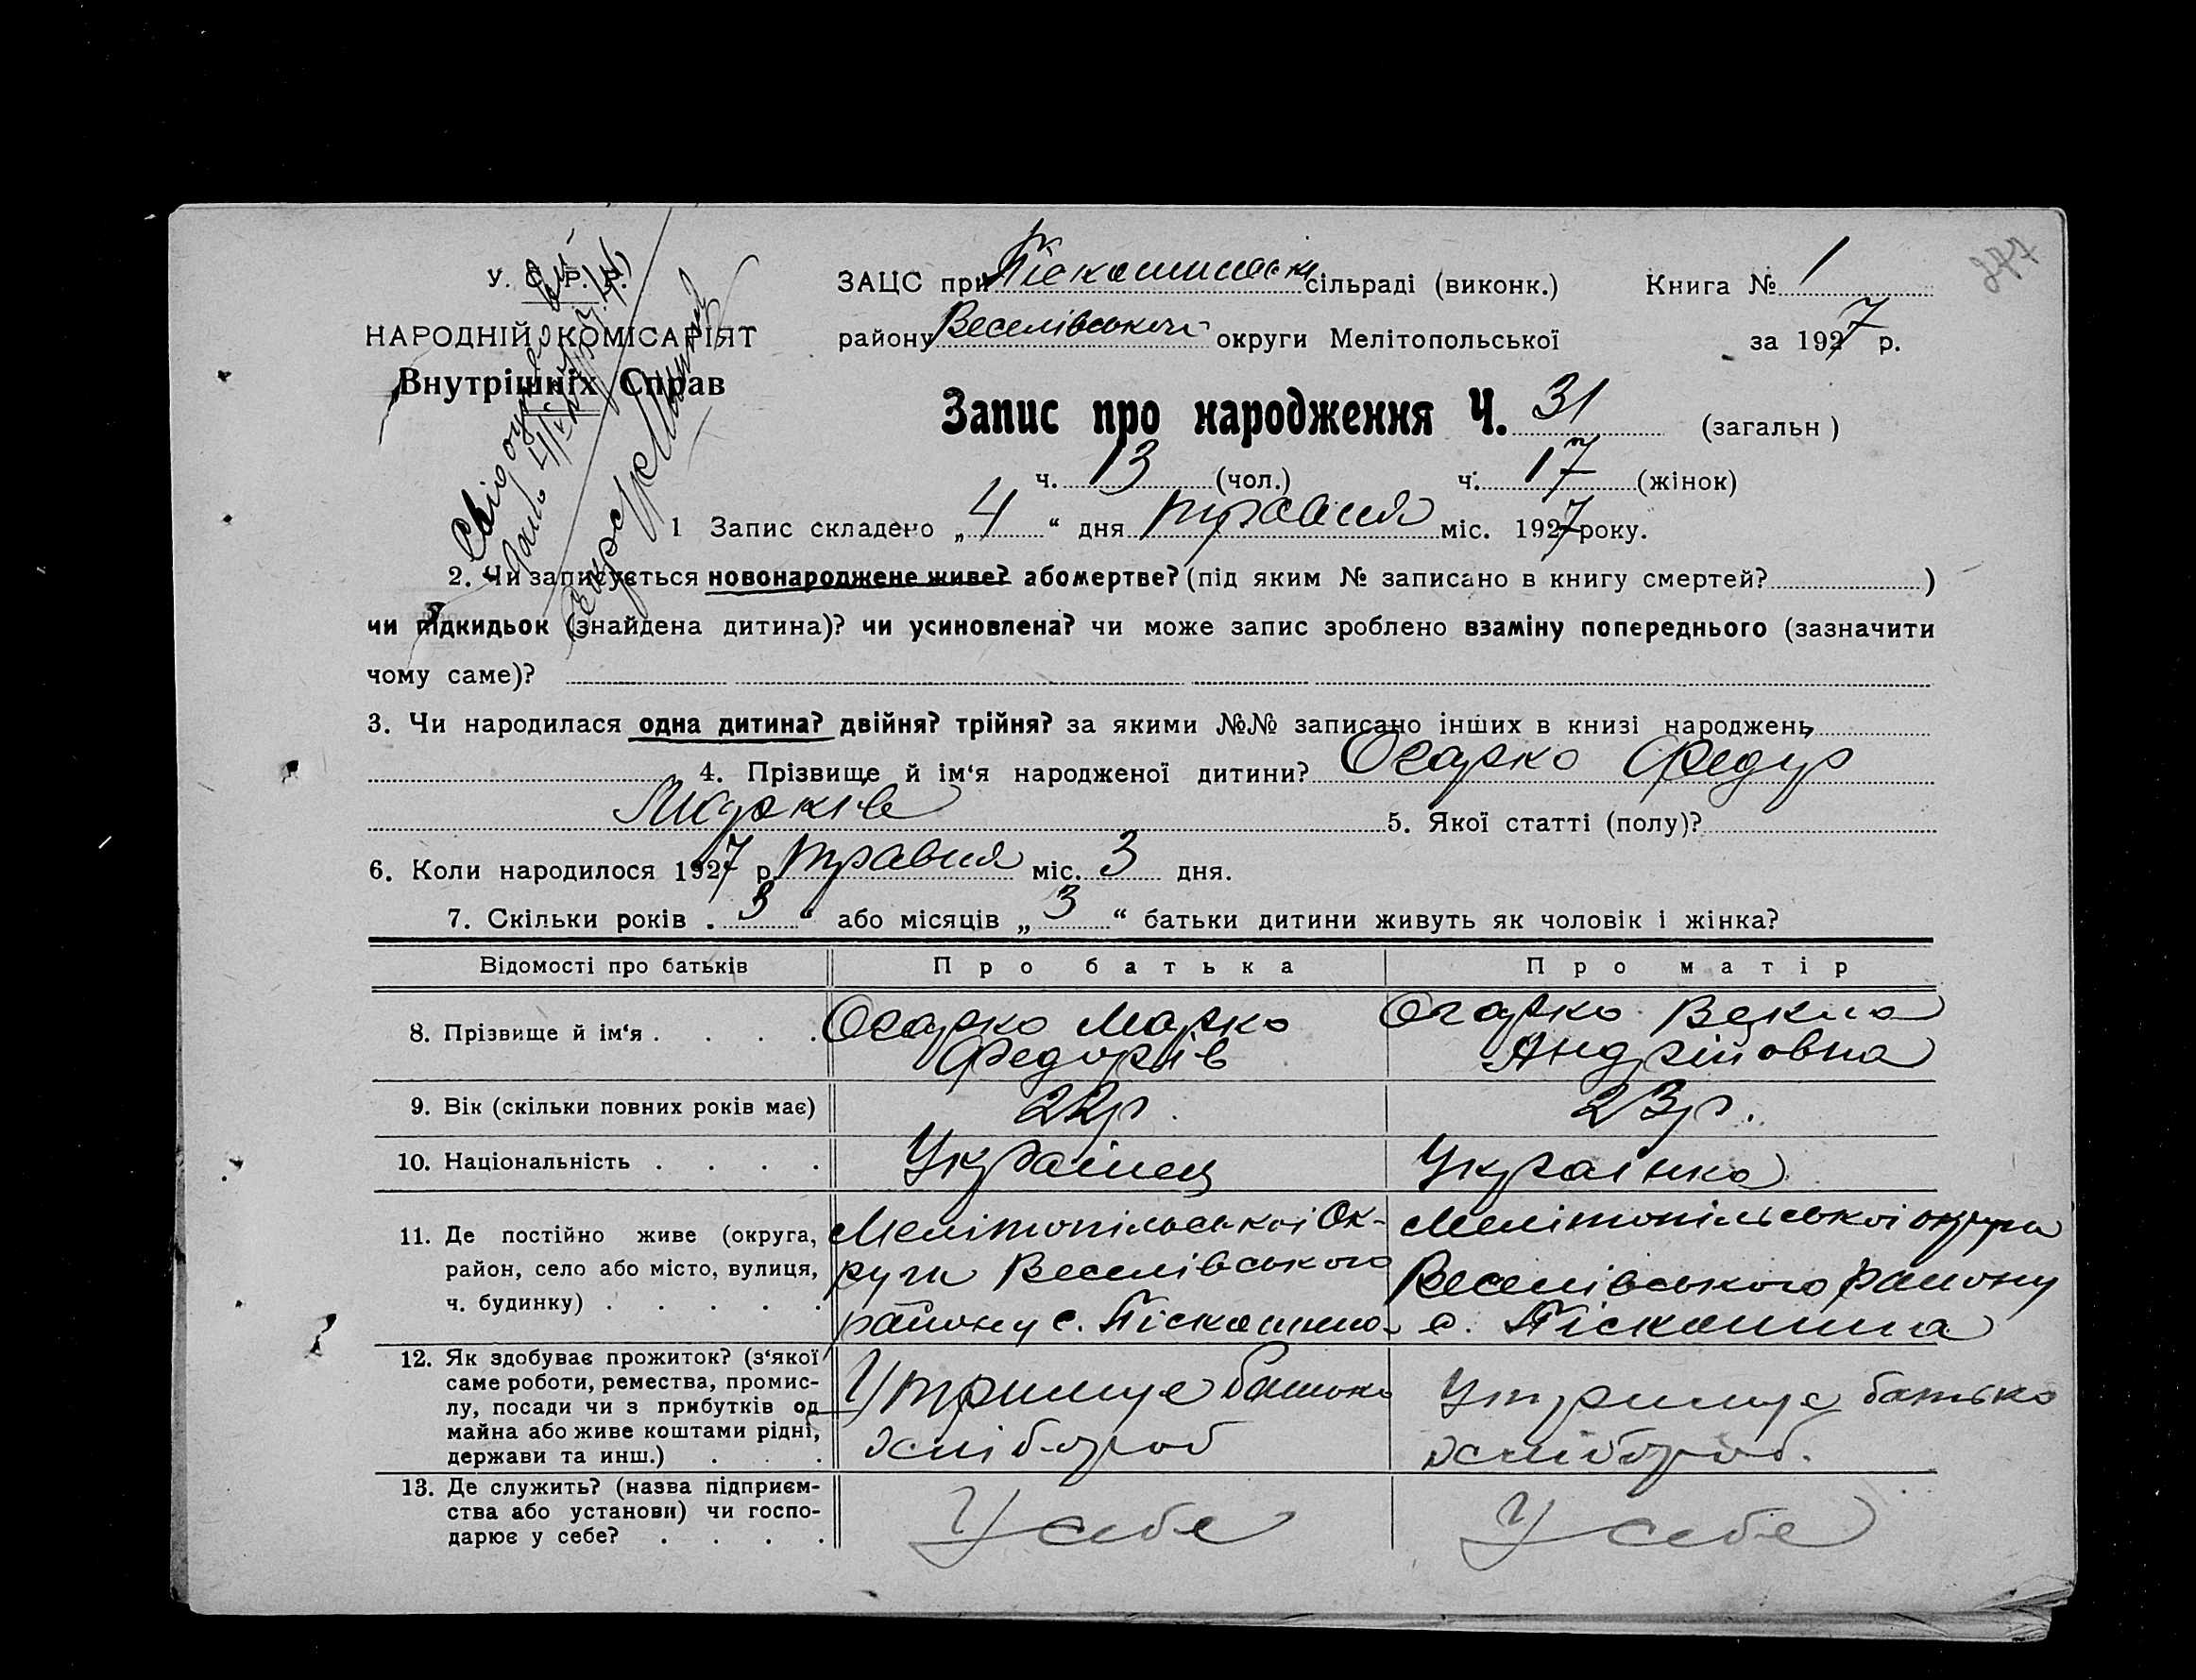 У. С. Р. Р.
НАРОДНІЙ КОМІСАРІЯТ
Внутрішніх Справ
ЗАЦС при Піскошинськ сільраді (виконк.) Книга № 1
району Веселівської округи Мелітопольської за 1927 р.
277
Запис про народження Ч. 31 (загальн)
ч. 13 (чол.) ч. 17 (жінок)
1 Запис складено „4“ дня травня міс. 1927 року.
2. Чи записується новонароджене живе? або мертве? (під яким № записано в книгу смертей? )
чи підкидьок (знайдена дитина)? чи усиновлена? чи може запис зроблено взаміну попереднього (зазначити
чому саме)?
3. Чи народилася одна дитина? двійня? трійня? за якими №№ записано інших в книзі народжень
4. Прізвище й ім‘я народженої дитини? Огарко Федір
Марків 5. Якої статті (полу)?
6. Коли народилося 1927 р. травня міс. 3 дня.
7. Скільки років „3“ або місяців „3“ батьки дитини живуть як чоловік і жінка?
Відомості про батьків Про батька Про матір
8. Прізвище й ім‘я . . . . Огарко Марко Огарко Векла
Федорів Андрійовна
9. Вік (скільки повних років має) 22 р. 23 р.
10. Національність . . . . Українец Українка
11. Де постійно живе (округа, Мелітопільської Ок- Мелітопільської округи
район, село або місто, вулиця, руги Веселівського Веселівського району
ч. будинку) . . . . . району с. Піскошино с. Піскошина
12. Як здобуває прожиток? (з‘якої
саме роботи, ремества, промис- Утримує батько Утримує батько
лу, посади чи з прибутків од
майна або живе коштами рідні, хлібороб хлібороб.
держави та инш.) . . .
13. Де служить? (назва підприєм-
ства або установи) чи госпо- У себе У себе
дарює у себе? . . . .